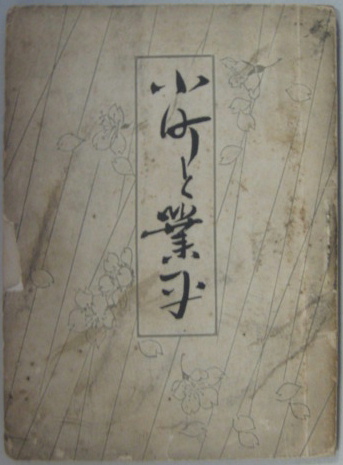 小町と業平